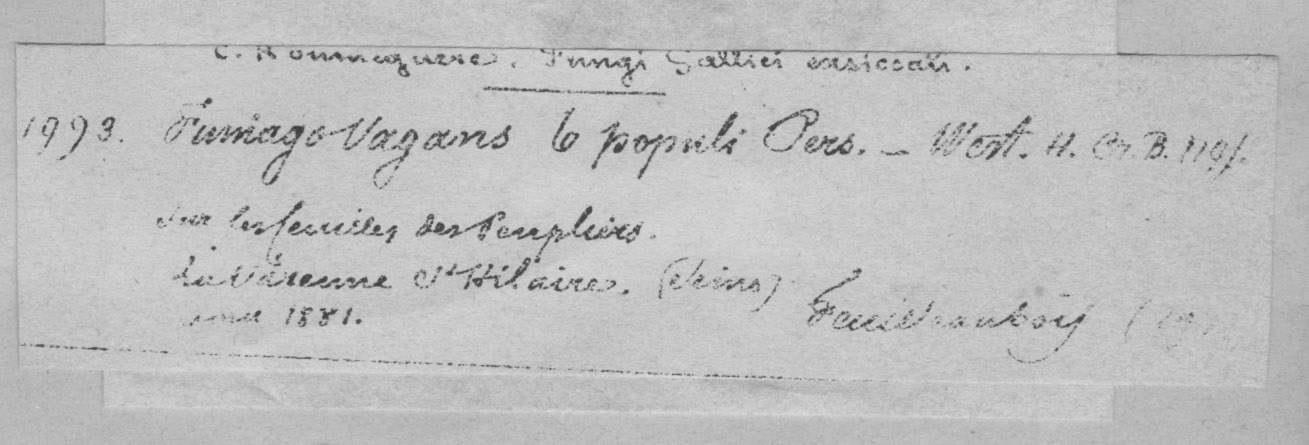 C. Roumeguere. Fungi Gallici exsiccati.
1993. Fumago Vagans b populi Pers. – West. H. Cr. B. 119
Sur les feuilles des Peupliers.
La Varenne St Hilaire. (Seine)
1881.
Feuilleaubois